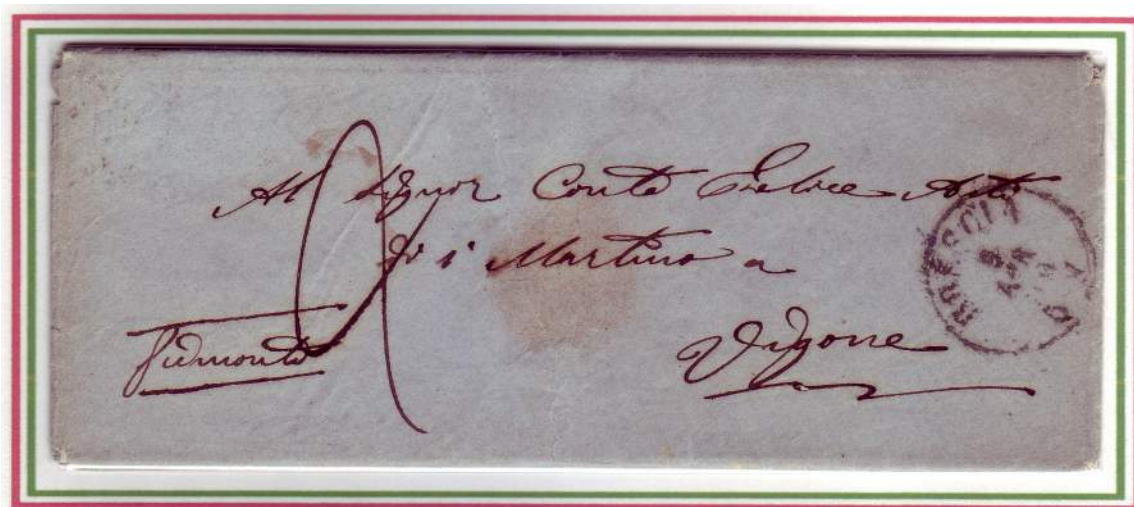 Al Signor Conte Felice
Di S Martino a
Vigone
Piemonte
BRESCIA